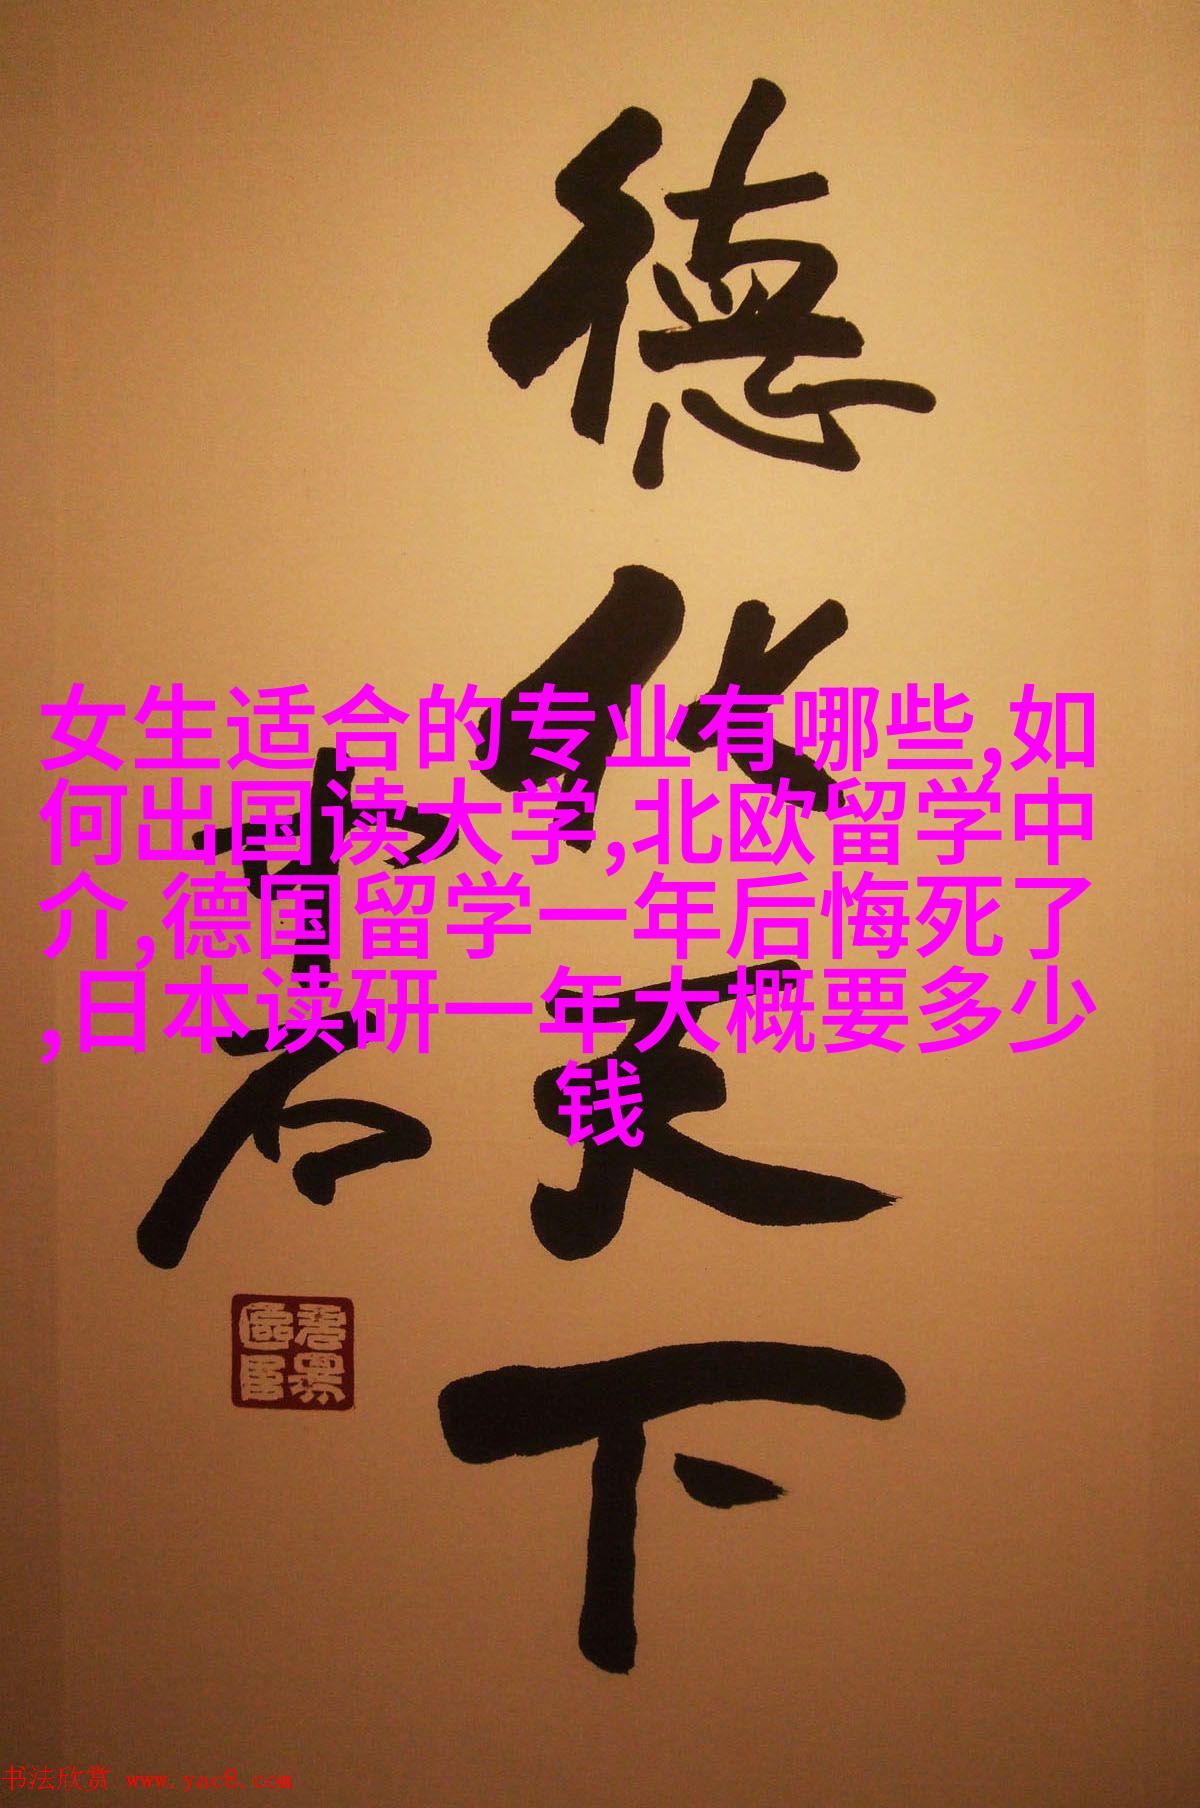 德化天下
大石
女生适合的专业有哪些,如
何出国读大学,北欧留学中
介,德国留学一年后悔死了
,日本读研一年大概要多少
钱
书法欣赏 www.yac8.com